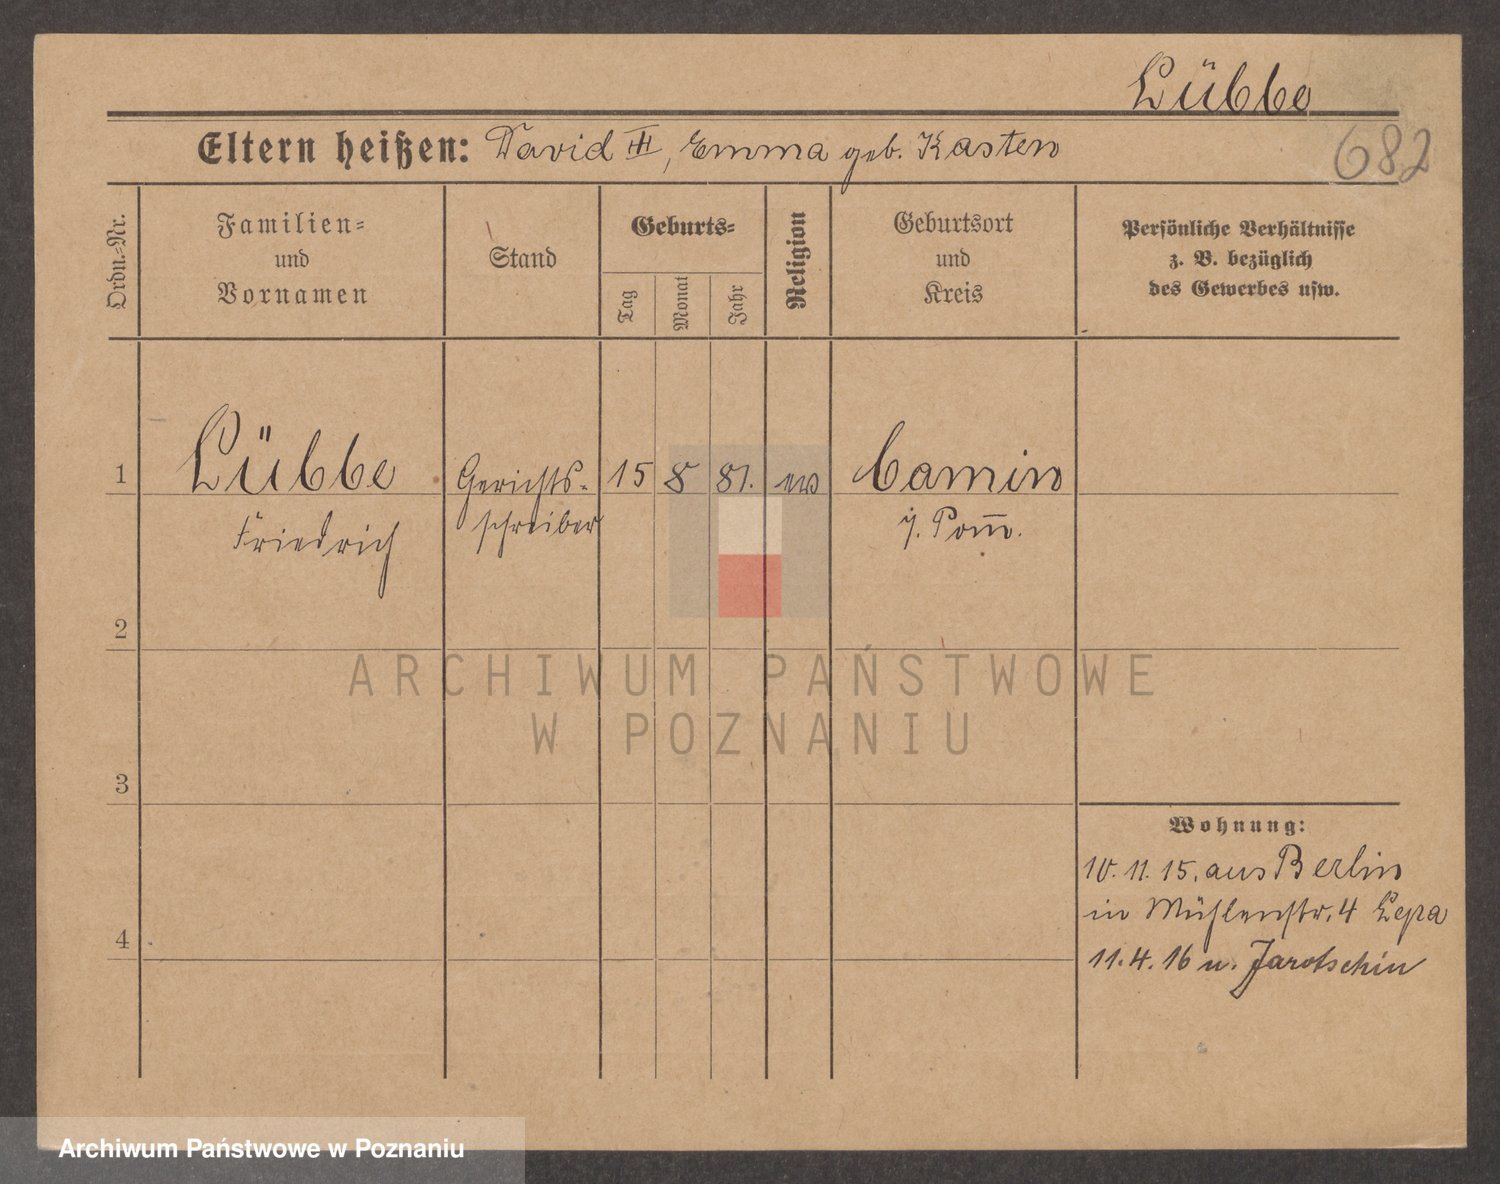 Lübbe
682
Eltern heißen: David III, Emma geb. Kasten
Ordn.=Nr.
Familien=
und
Vornamen
Stand
Geburts=
Tag
Monat
Jahr
Religion
Geburtsort
und
Kreis
Persönliche Verhältnisse
z. B. bezüglich
des Gewerbes usw.
1 Lübbe Gerichts- 15 8 81. ev Camin
Friedrich schreiber i/. Pom̅.
2
ARCHIWUM PAŃSTWOWE
W POZNANIU
3
Wohnung:
10. 11. 15. aus Berlin
in Mühlenstr. 4
4
11. 4. 16 n. Jarotschin
Archiwum Państwowe w Poznaniu